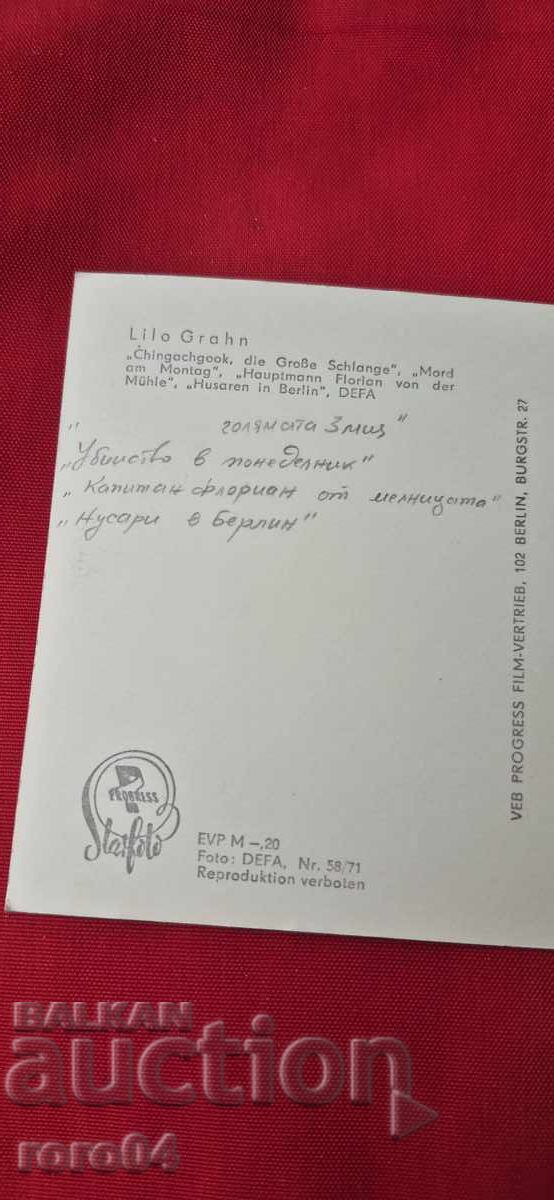 Lilo Grahn
„Chingachgook, die Große Schlange", „Mord
am Montag", „Hauptmann Florian von der
Mühle", „Husaren in Berlin", DEFA
" голямата Змия"
„Убийство в понеделник"
„Капитан Флориан от мелницата"
„Хусари в Берлин"
VEB PROGRESS FILM-VERTRIEB, 102 BERLIN, BURGSTR. 27
PROGRESS
Starfoto
EVP M –,20
Foto: DEFA, Nr. 58/71
Reproduktion verboten
BALKAN
auction
roro04